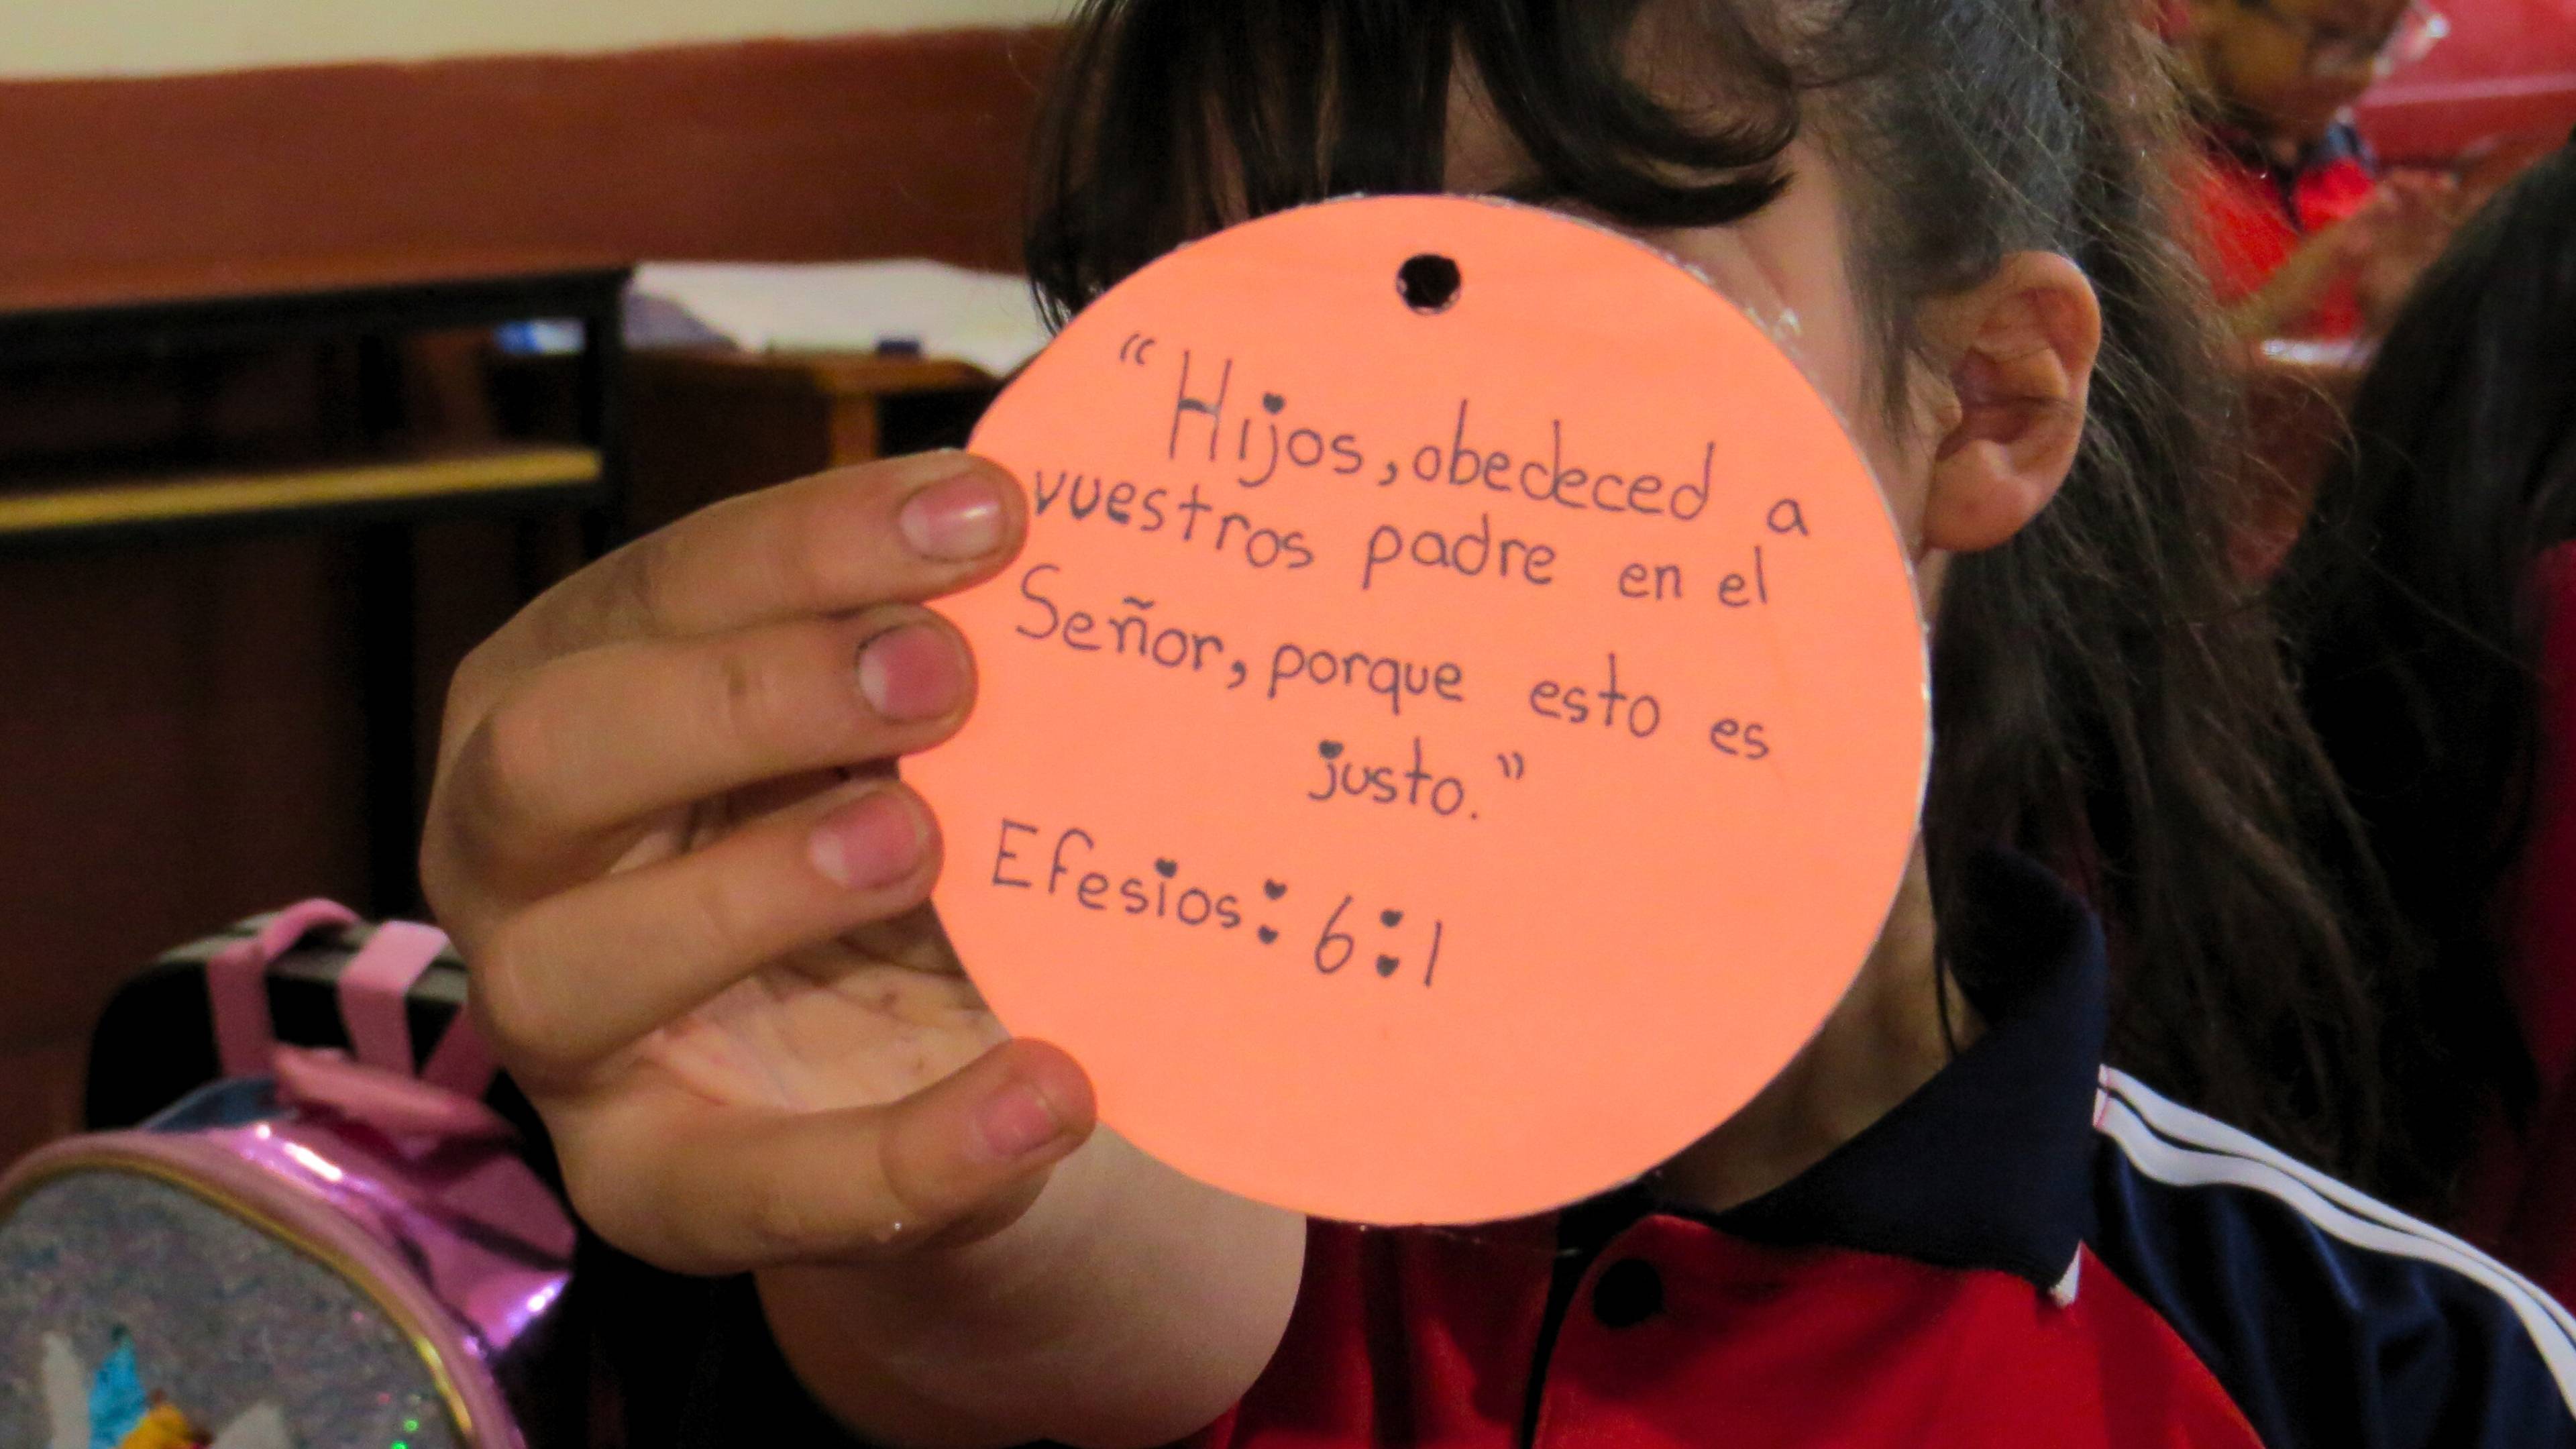 “Hijos, obedeced a
vuestros padre en el
Señor, porque esto es
justo.”
Efesios: 6:1